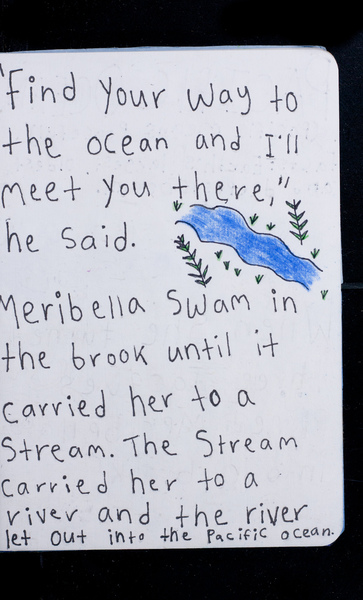 "Find your way to
the ocean and I'll
meet you there,"
he said.
Meribella swam in
the brook until it
carried her to a
stream. The stream
carried her to a
river and the river
let out into the Pacific ocean.